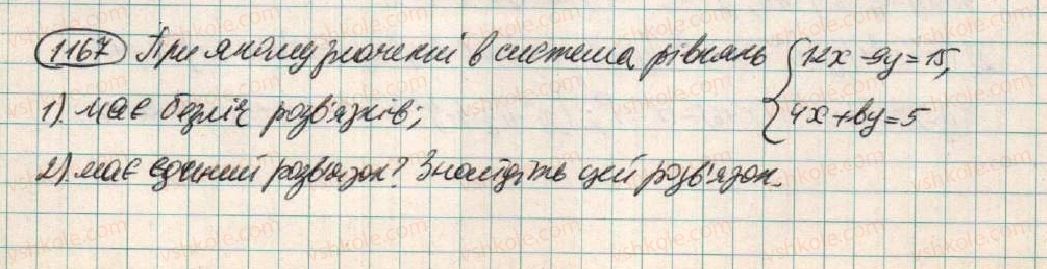 1167 При якому значенні в система рівнянь { 12x - 9y = 15,
1). має безліч розв'язків; 4x + вy = 5
2). має єдиний розв'язок? Знайдіть цей розв'язок.